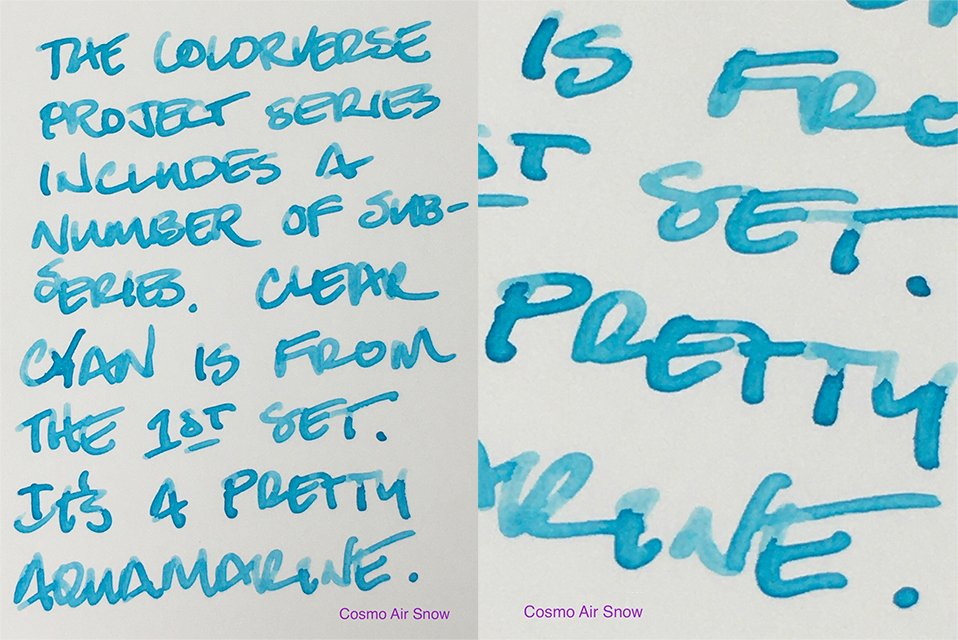 THE COLORVERSE
PROJECT SERIES
INCLUDES A
NUMBER OF SUB-
SERIES. CLEAR
CYAN IS FROM
THE 1ST SET.
IT'S A PRETTY
AQUAMARINE.
Cosmo Air Snow
IS FRO
ST SET.
PRETTY
RINE.
Cosmo Air Snow